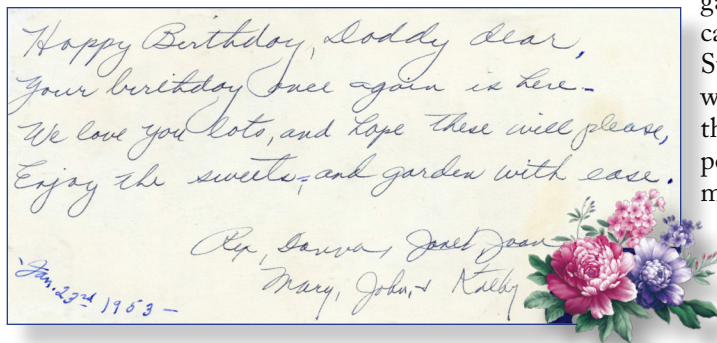 Happy Birthday, Daddy dear,
Your birthday once again is here-
We love you lots, and hope these will please,
Enjoy the sweets, and garden with ease.
Rex, Donna, Janet, Joan
Mary, John, & Kathy
Jan. 23rd 1953 —